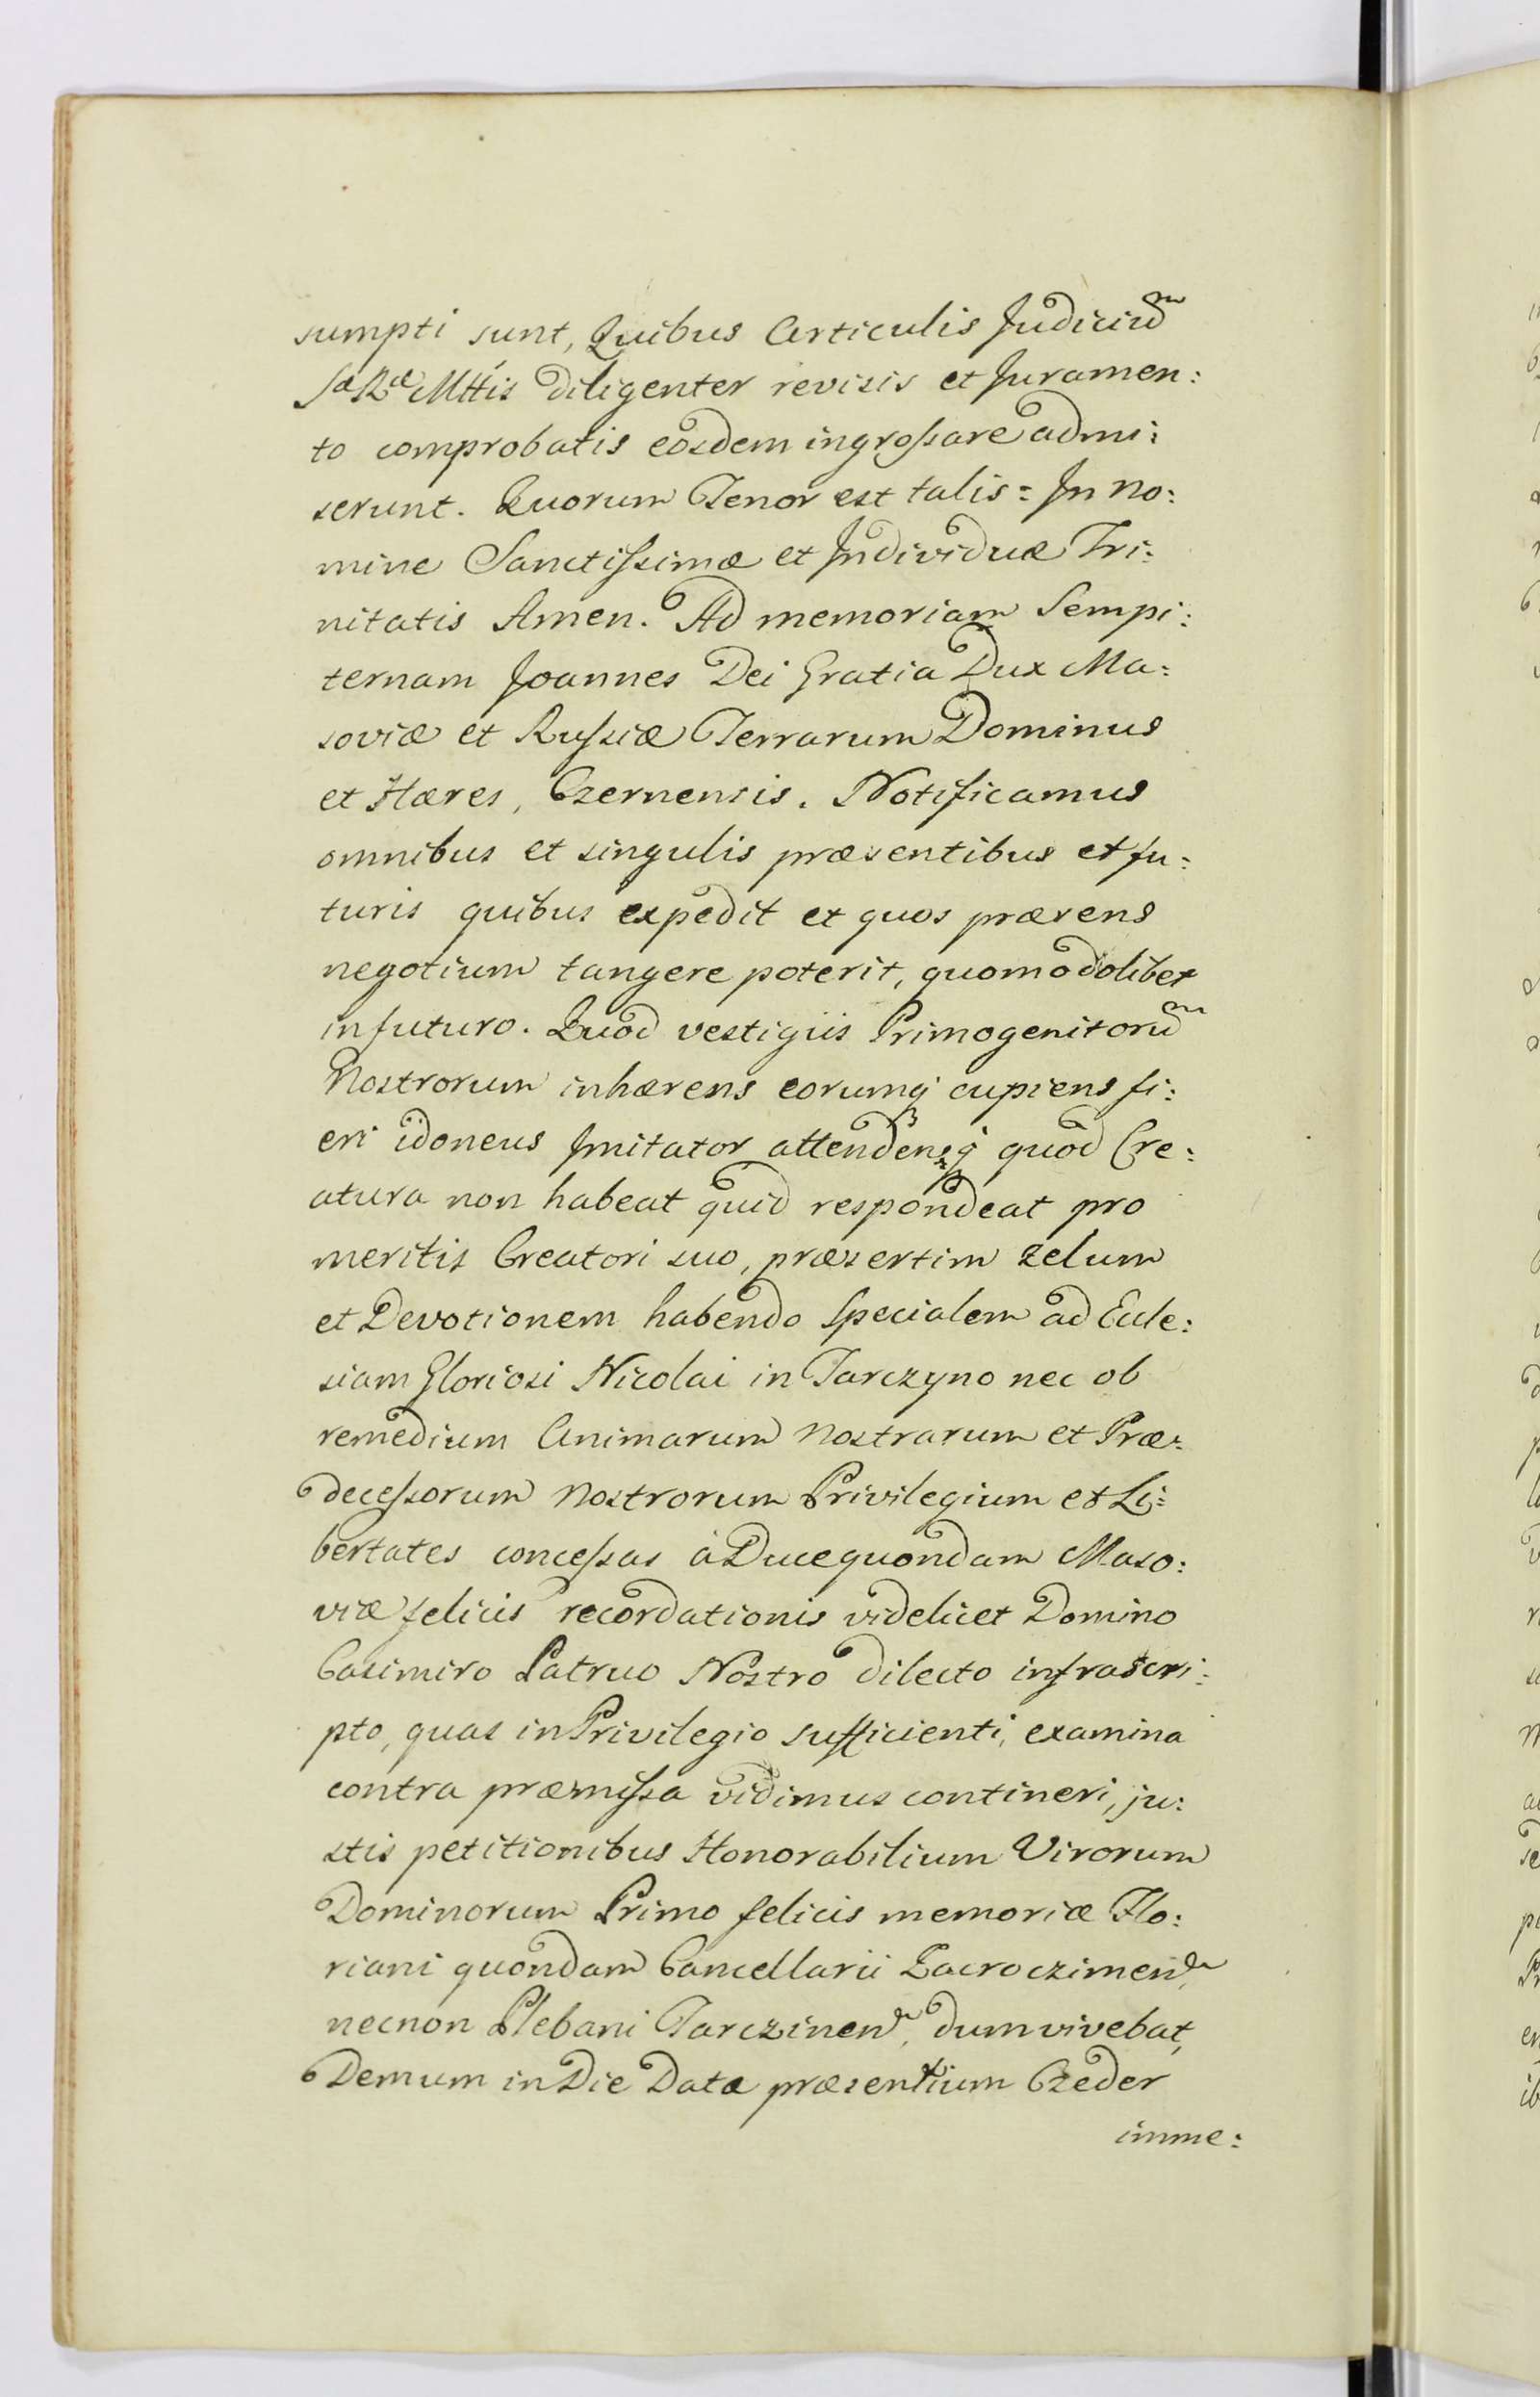 sumpti sunt, Quibus Articulis Judiciu͠m
Sæ Ræ Mttis diligenter revisis et Juramen:
to comprobatis eosdem ingrossare admi:
serunt. Quorum Tenor est talis = In no:
mine Sanctissimæ et Individuæ Tri:
nitatis Amen. Ad memoriam Sempi:
ternam Joannes Dei Gratia Dux Ma:
soviæ et Russiæ Terrarum Dominus
et Hæres, Czernensis. Notificamus
omnibus et singulis præsentibus et fu:
turis quibus expedit et quos præsens
negotium tangere poterit, quomodolibet
in futuro. Quod vestigiis Primogenitoru͠m
Nostrorum inhærens eorumq cupiens fi:
eri idoneus Imitator attendensq quod Cre:
atura non habeat quid respondeat pro
meritis Creatori suo, præsertim zelum
et Devotionem habendo Specialem ad Eccle:
siam Gloriosi Nicolai in Tarczyno nec ob
remedium Animarum Nostrarum et Præ:
decessorum Nostrorum Privilegium et Li:
bertates concessas à Duce quondam Maso:
viæ felicis recordationis videlicet Domino
Casimiro Patruo Nostro dilecto infrascri:
pto, quas in Privilegio sufficienti, examina
contra præmissa vidimus contineri, ju:
stis petitionibus Honorabilium Virorum
Dominorum Primo felicis memoriæ Flo:
riani quondam Cancellarii Zacroczimen
necnon Plebani Tarczinen, dum vivebat,
Demum in Die Data præsentium Czeder
imme: